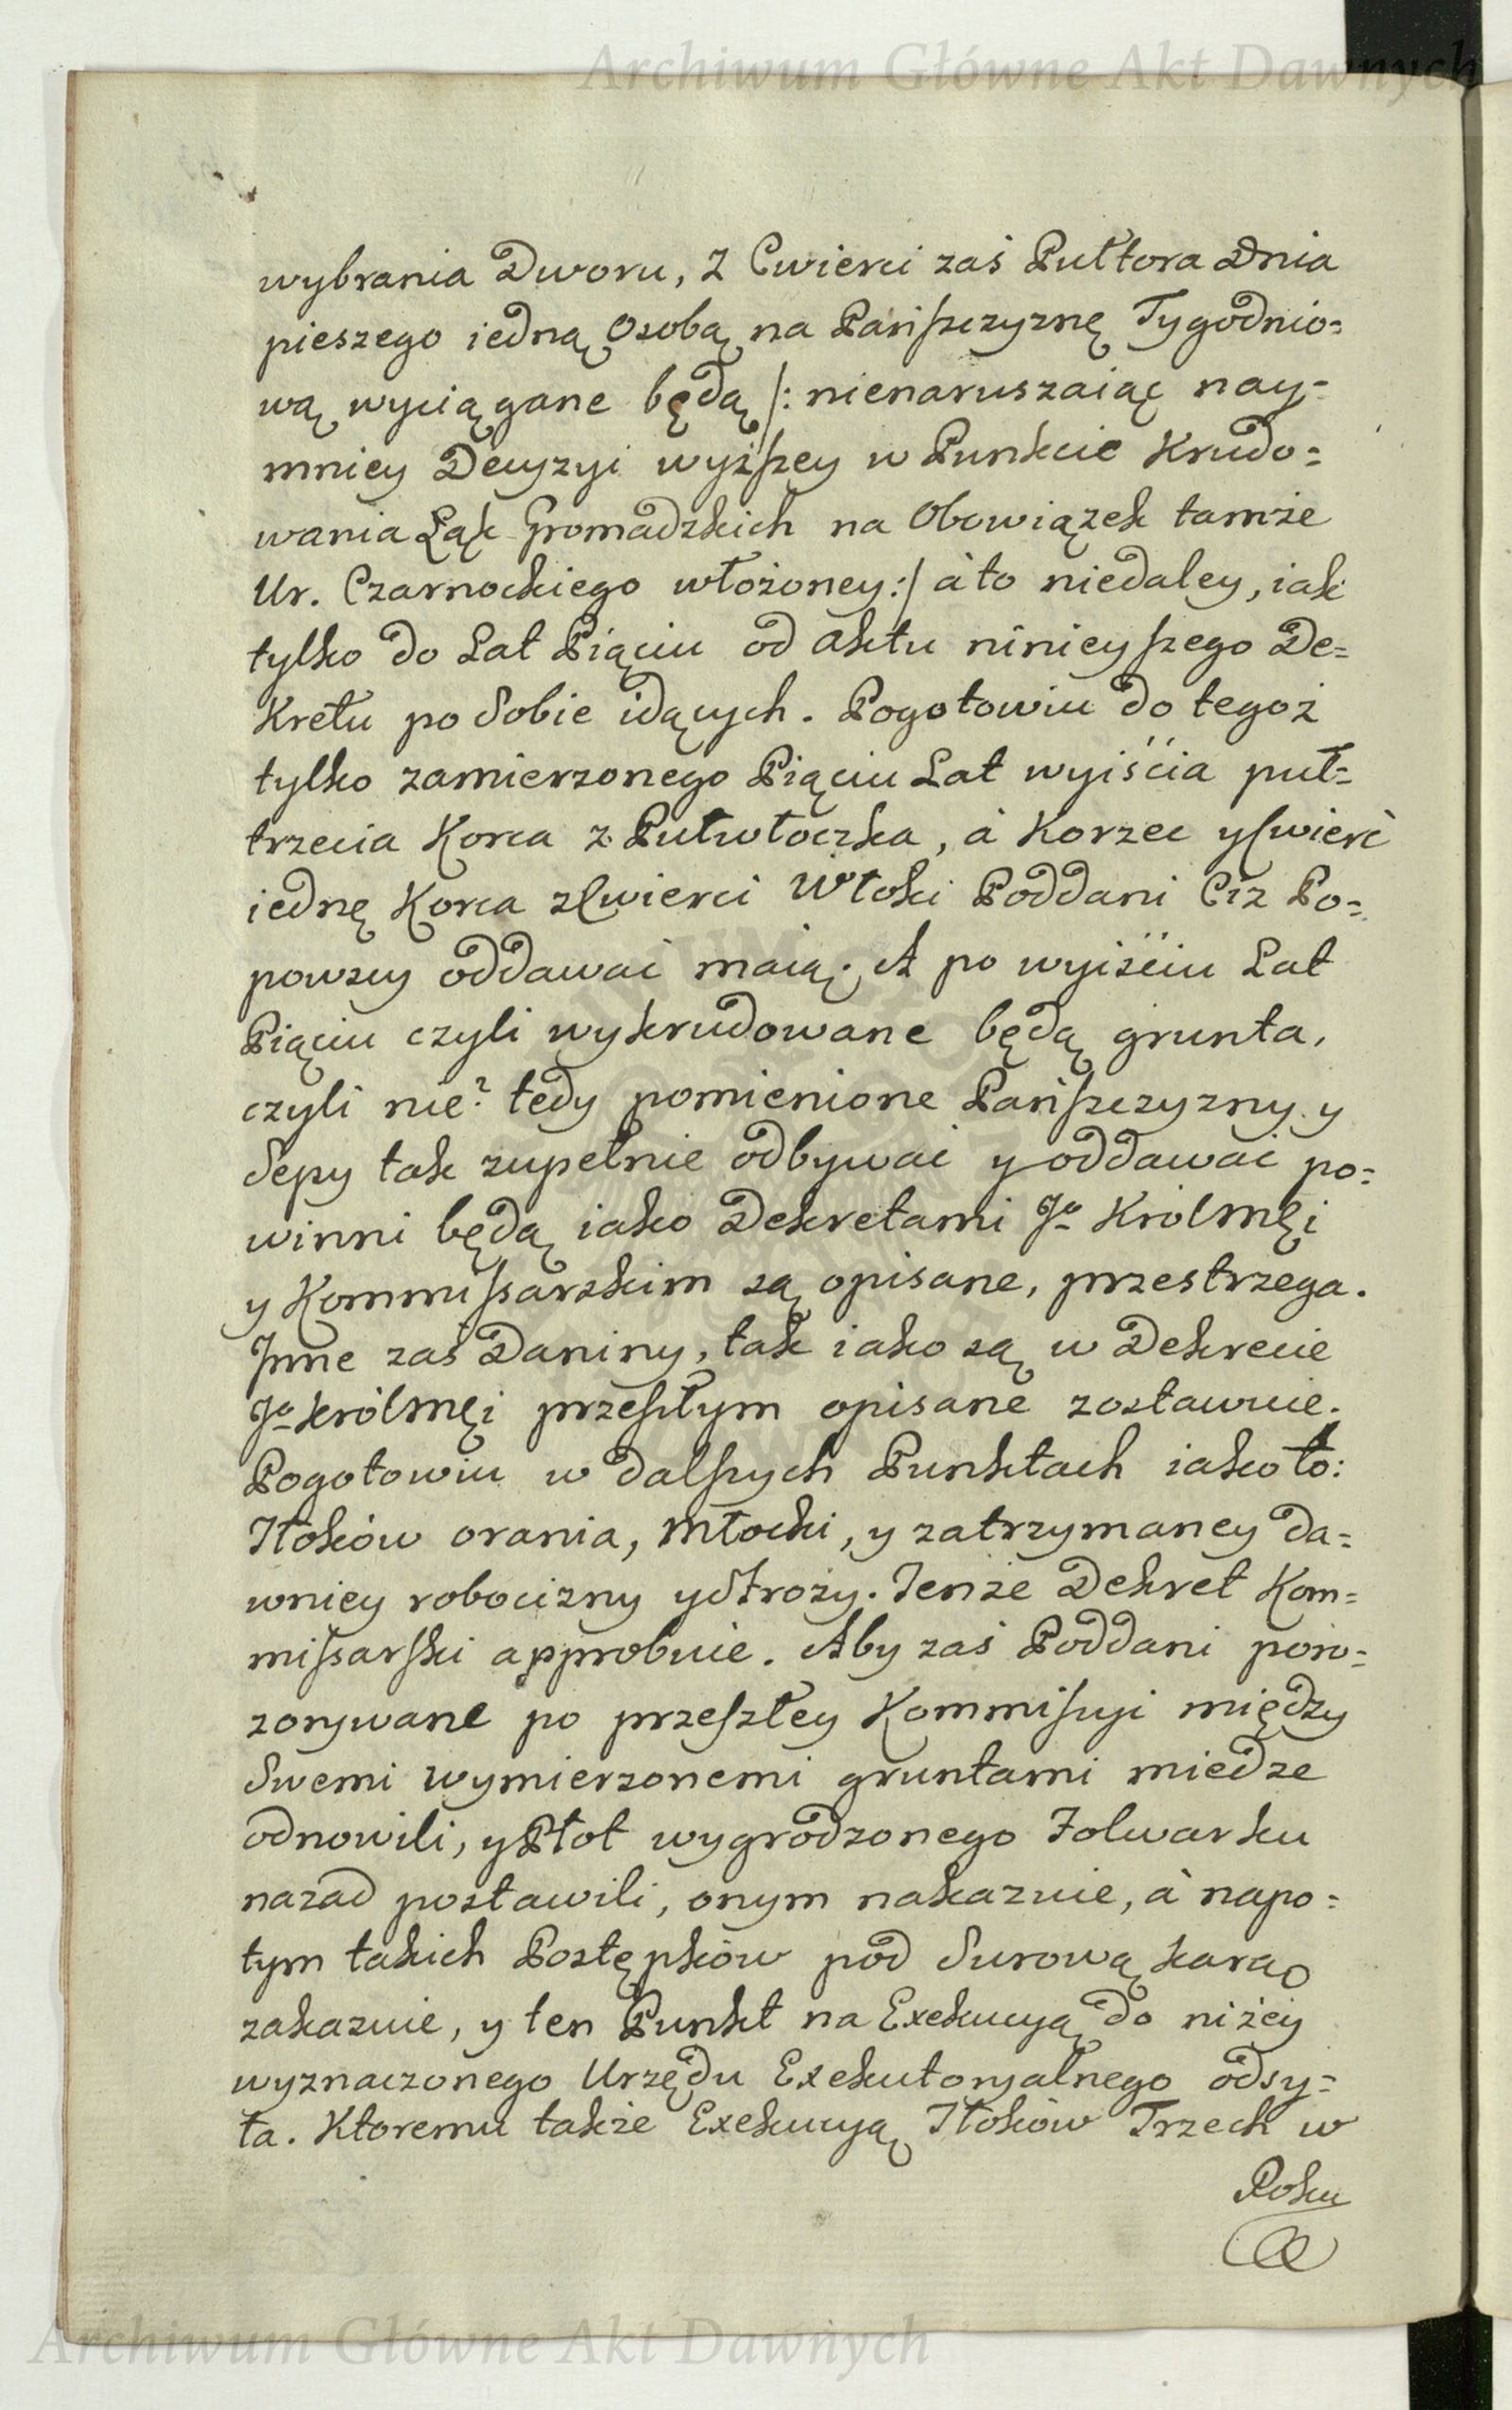 Archiwum Główne Akt Dawnych
wybrania Dworu, z Cwierci zaś Pułtora Dnia
pieszego iedną Osobą na Pańszczyznę Tygodnio=
wą wyciągane będą /: nienaruszaiąc nay=
mniey Decyzyi wyższey w Punkcie Krudo=
wania Łąk Gromadzkich na Obowiązek tamże
Ur. Czarnockiego włożoney :/ à to niedaley, iak
tylko do Lat Piąciu od Aktu ninieyszego De=
kretu po sobie idących. Pogotowiu do tegoż
tylko zamierzonego Piąciu Lat wyiścia puł=
trzecia Korca z Pułwłoczka, à Korzec y Cwierć
iednę Korca z Cwierci Włoki Poddani Ciż Po=
powscy oddawać maią. A po wyiściu Lat
Piąciu czyli wykrudowane będą grunta,
czyli nie? tedy pomienione Pańszczyzny y
Sepy tak zupełnie odbywać y oddawać po=
winni będą, iako Dekretami Jo Królmći
y Kommissarskim są opisane, przestrzega.
Jnne zaś Daniny, tak iako są w Dekrecie
Jo Królmći przeszłym opisane zostawuie.
Pogotowiu w dalszych Punktach iako to:
Tłoków orania, Młocki, y zatrzymaney da=
wniey robocizny y Stroży. Tenże Dekret Kom=
missarski approbuie. Aby zaś Poddani poro=
zorywane po przeszłey Kommissyi między
Swemi wymierzonemi gruntami miedze
odnowili, y Płot wygrodzonego Folwarku
nazad postawili, onym nakazuie, à napo=
tym takich Postępków pod Surową karą
zakazuie, y ten Punkt na Exekucyą do niżey
wyznaczonego Urzędu Exekutoryalnego odsy=
ła. Ktoremu także Exekucyą Tłoków Trzech w
Roku
Archiwum Główne Akt Dawnych